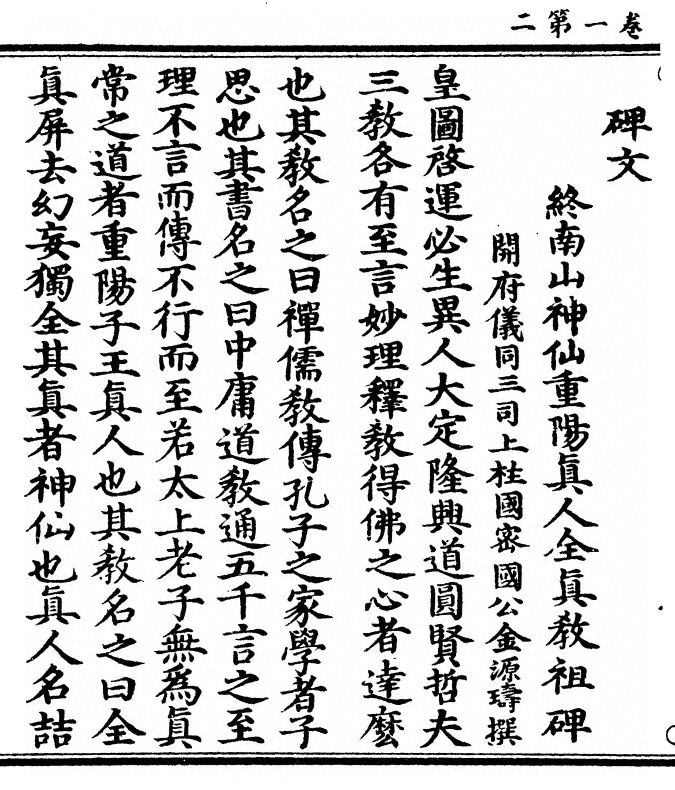 卷一第二
碑文
終南山神仙重陽眞人全眞教祖碑
開府儀同三司上柱國密國公金源璹撰
皇圖啓運必生異人大定隆興道圓賢哲夫
三教各有至言妙理釋教得佛之心者達麼
也其教名之曰禪儒教傳孔子之家學者子
思也其書名之曰中庸道教通五千言之至
理不言而傳不行而至若太上老子無爲眞
常之道者重陽子王眞人也其教名之曰全
眞屏去幻妄獨全其眞者神仙也眞人名喆